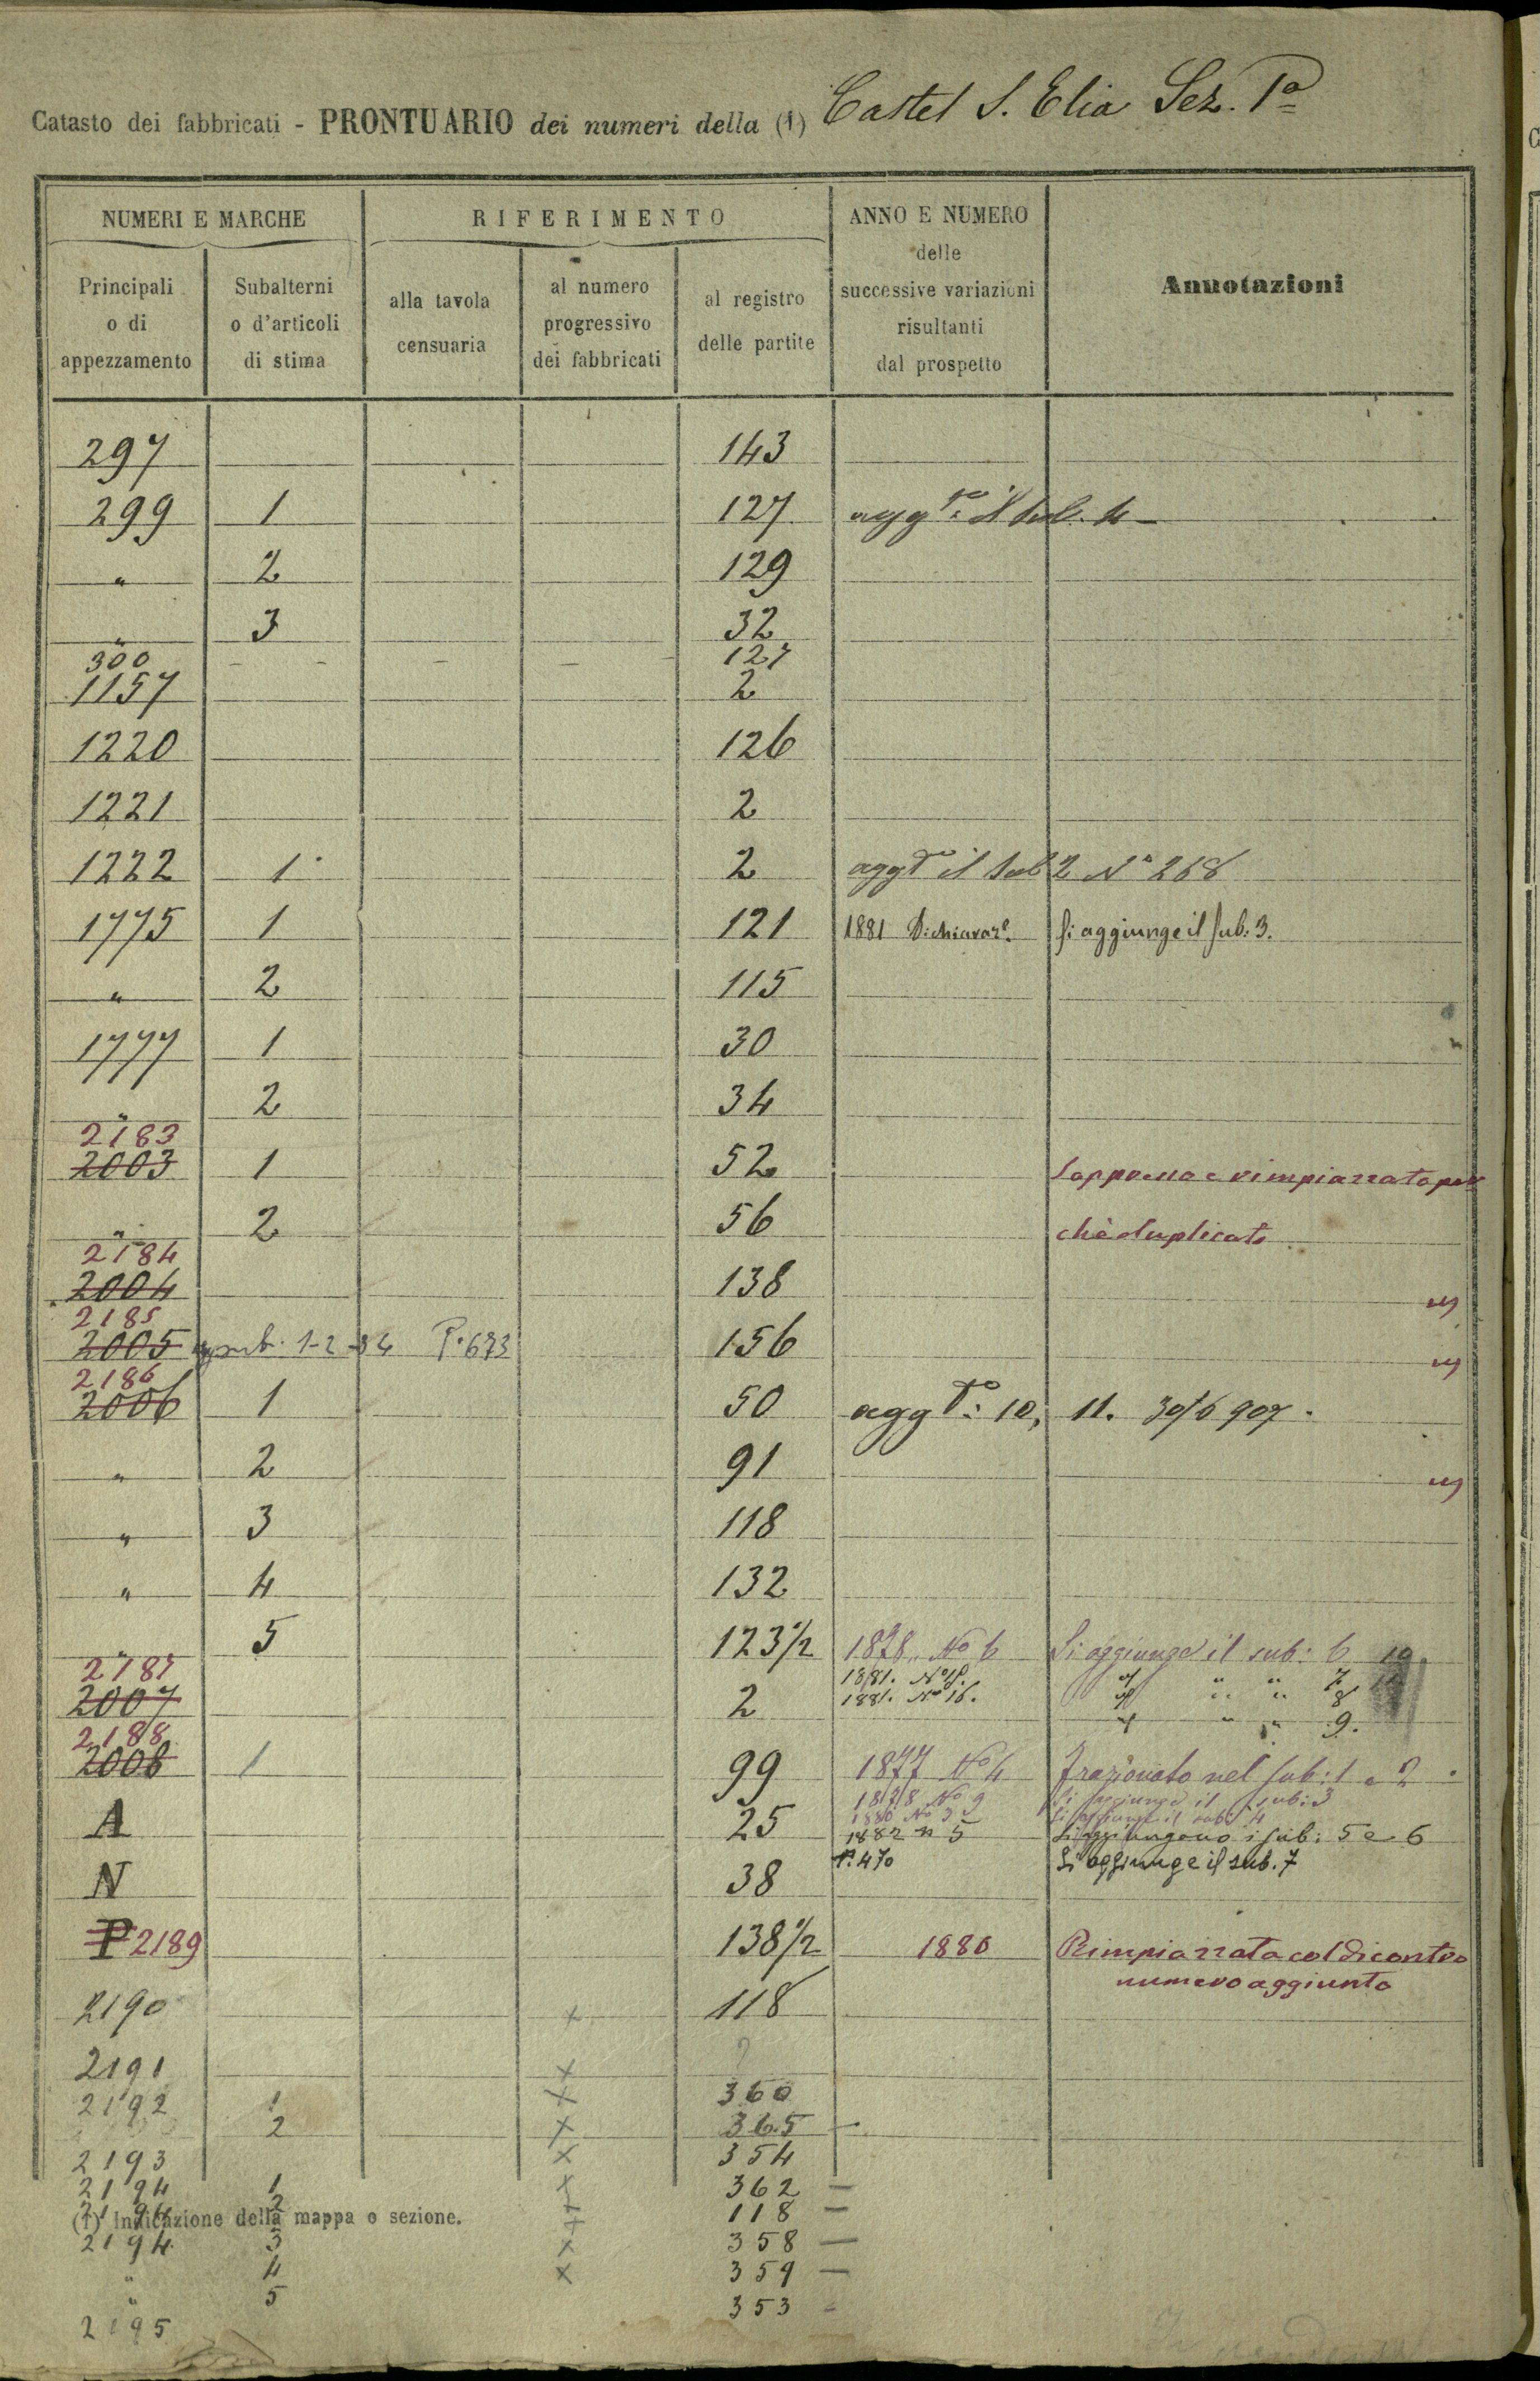 Catasto dei fabbricati - PRONTUARIO dei numeri della (1) Castel S. Elia Sez. 1ª
NUMERI E MARCHE RIFERIMENTO ANNO E NUMERO delle successive variazioni risultanti dal prospetto Annotazioni
Principali o di appezzamento Subalterni o d'articoli di stima alla tavola censuaria al numero progressivo dei fabbricati al registro delle partite
297 143
299 1 127 aggto: il sub. 4
" 2 129
" 3 32
300 - - - - - 127
1157 2
1220 126
1221 2
1222 1 2 aggto il sub 2 N° 268
1775 1 121 1881 Dichiaraze. Si aggiunge il sub: 3.
" 2 115
1777 1 30
" 2 34
2183
2003 1 52 Soppresso e rimpiazzato per
" 2 56 chè duplicato
2184
2004 138 "
2185
2005 sub. 1-2-34 P. 673 156 "
2186
2006 1 50 aggto: 10, 11. 30/6 907.
" 2 91 "
" 3 118
" 4 132
" 5 123 1/2 1878. No 6 Si aggiunge il sub: 6 10
2187 1881. No 18. " " " 7
2007 2 1881. No 16. " " " 8
" " " 9.
2188
2008 1 99 1877 No 4 Frazionato nel sub: 1 e 2
1878 No 9 Si aggiunge il sub: 3
A 25 1880 No 3 Si aggiunge il sub: 4
1882 n 5 Si aggiungono i sub: 5 e 6
N 38 P. 470 Si aggiunge il sub. 7
P 2189 138 1/2 1880 Rimpiazzata col dicontro
numero aggiunto
2190 x 118
2191 x ?
2192 1 x 360
2 x 365 -
2193 x 354
2194 1 x 362 -
2194 2 x 118 -
(1) Indicazione della mappa o sezione.
2194 3 x 358 -
" 4 x 359 -
" 5 353 -
2195